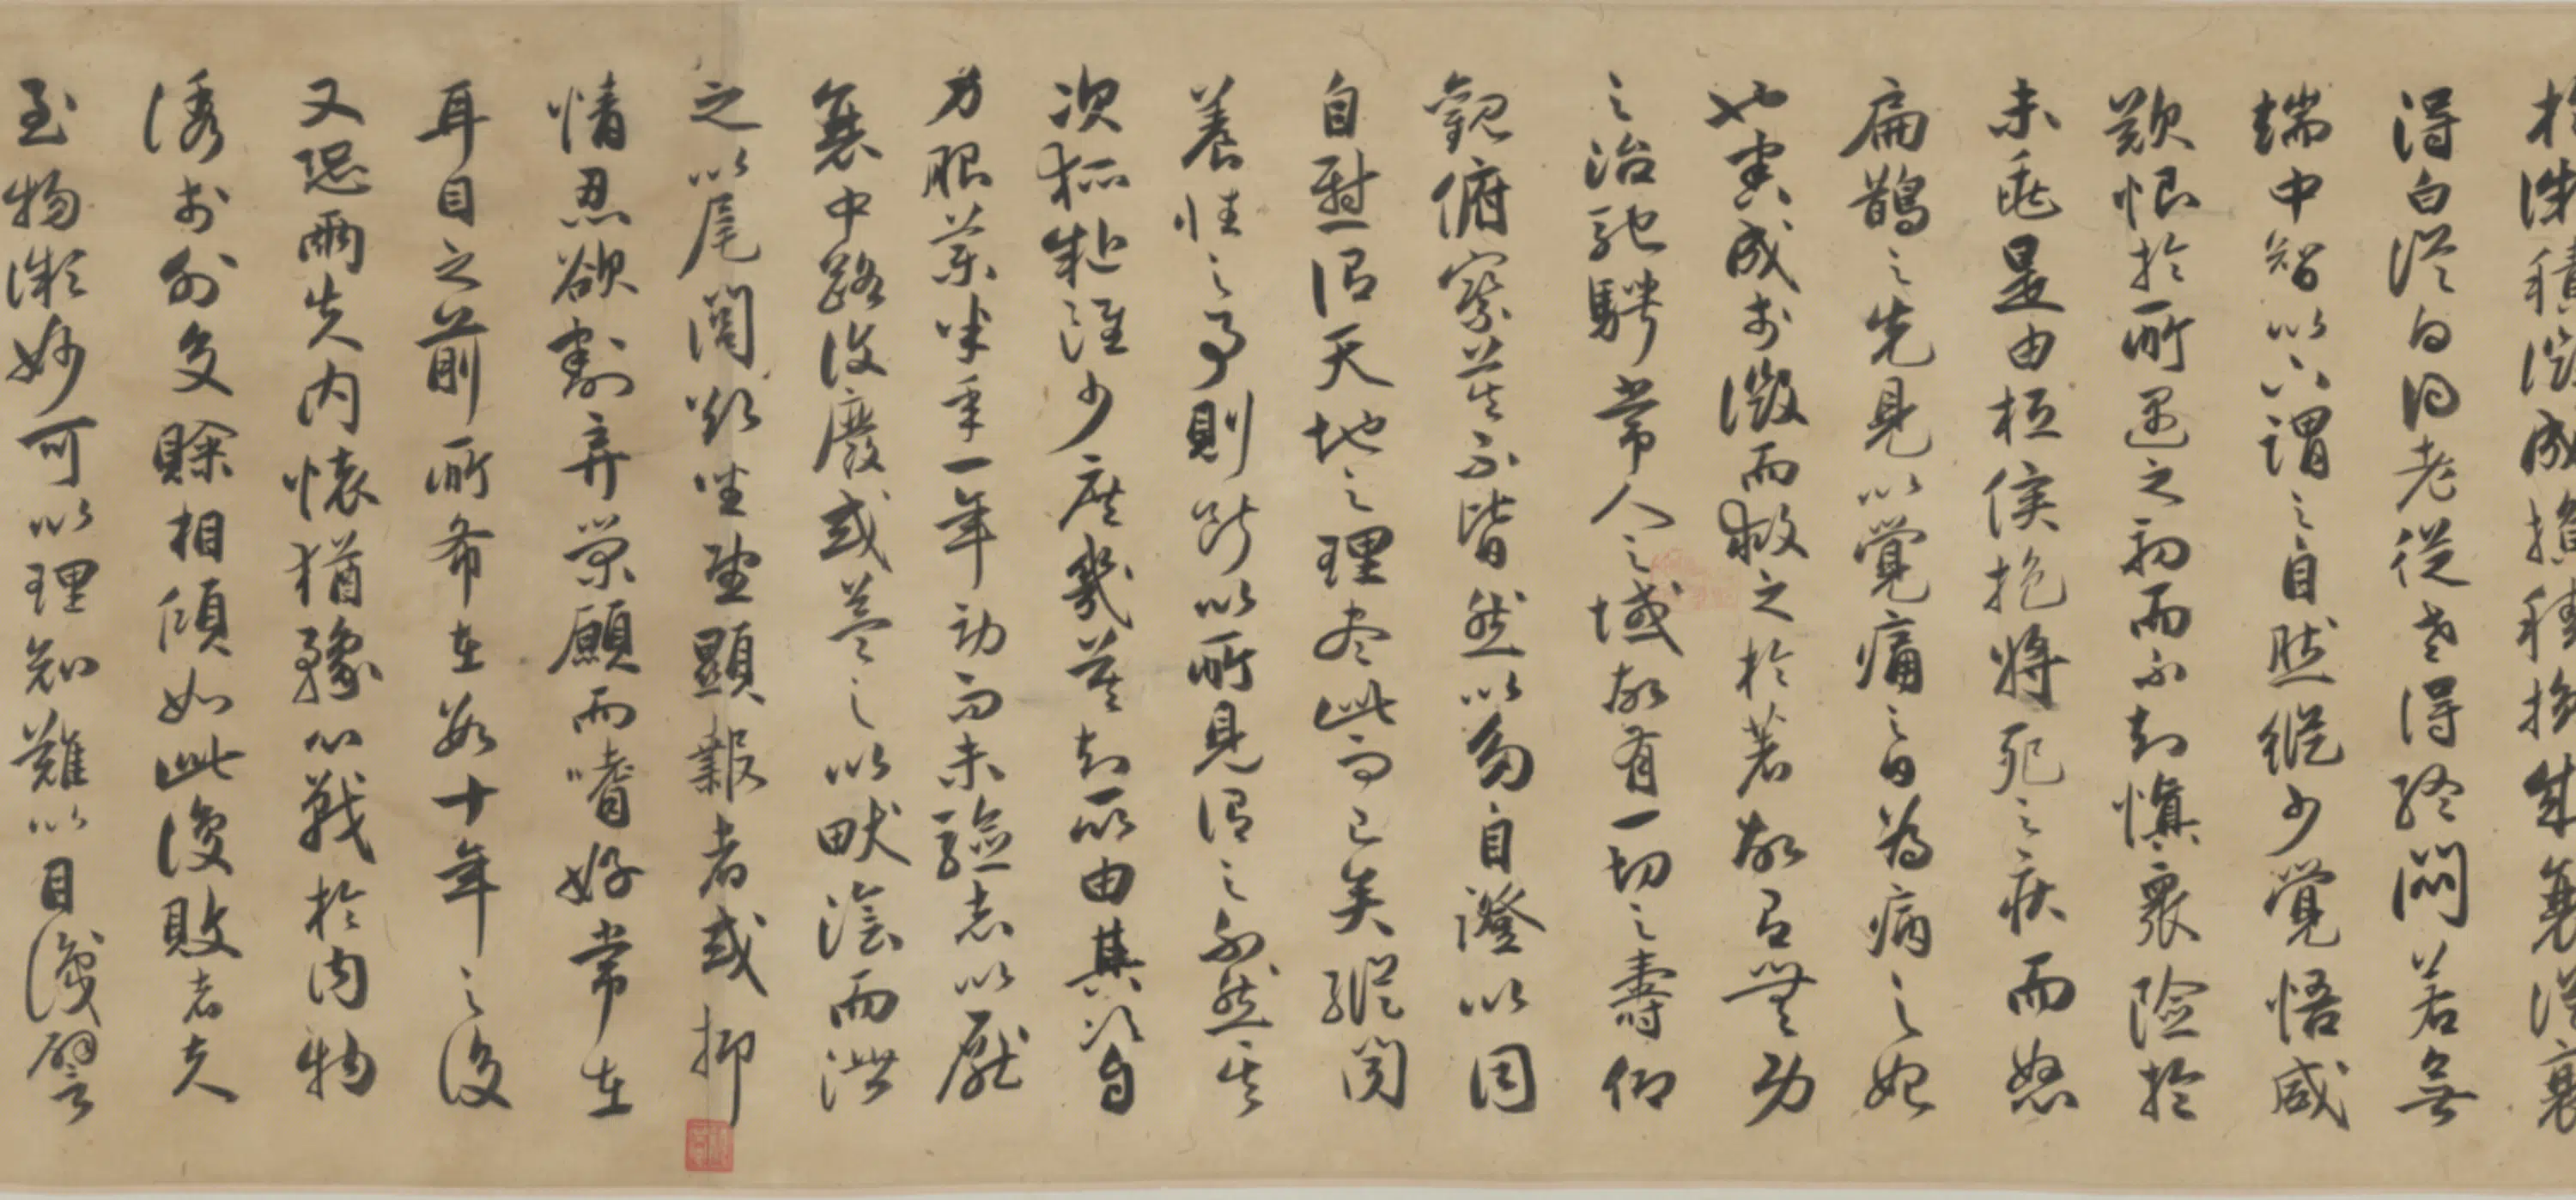 於微積微成損積損成衰從衰
得白從白得老從老得終悶若無
端中智以下謂之自然縱少覺悟咸
歎恨於所遇之初而不知慎眾險於
未兆是由桓侯抱將死之疾而怒
扁鵲之先見以覺痛之日為病之始
也害成於微而救之於著故有無功
之治馳騁常人之域故有一切之壽仰
觀俯察莫不皆然以多自證以同
自慰謂天地之理盡此而已矣縱聞
養性之事則斷以所見謂之不然其
次狐疑雖少庶幾莫知所由其次自
力服藥半年一年勞而未驗志以厭
衰中路復廢或益之以畎澮而泄
之以尾閭欲坐望顯報者或抑
情忍欲割棄榮願而嗜好常在
耳目之前所希在數十年之後
又恐兩失內懷猶豫心戰於內物
誘於外交賒相傾如此復敗者夫
至物微妙可以理知難以目識譬